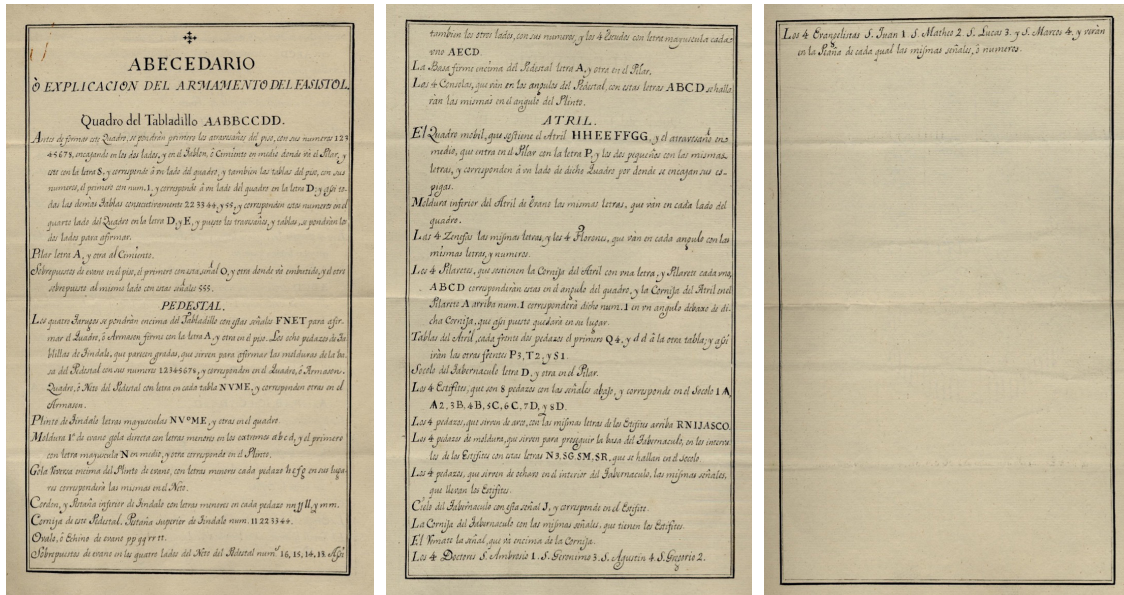 ABECEDARIO
Ò EXPLICACION DEL ARMAMENTO DEL FASISTOL.
Quadro del Tabladillo AABBCCDD.
Antes de formar este Quadro, se pondràn primero los atravesaños del piso, con sus numeros 123
45678, encagando en los dos lados, y en el Tablon, ò Cimiento en medio donde và el Pilar, y
este con la letra S, y corresponde à vn lado del quadro, y tambien las tablas del piso, con sus
numeros, el primero con num. 1, y corresponde à vn lado del quadro en la letra D; y assi to-
das las demas Tablas consecutivamente 22 33 44, y 55, y corresponden estos numeros en el
quarto lado del Quadro en la letra D, y E, y puesto los travesaños, y tablas, se pondràn los
dos lados para afirmar.
Pilar letra A, y otra al Cimiento.
Sobrepuestos de evano en el piso, el primero con esta señal O, y otra donde và embutido, y el otro
sobrepuesto al mismo lado con estas señales 555.
PEDESTAL.
Los quatro Tarugos se pondràn encima del Tabladillo con estas señales FNET para afir-
mar el Quadro, ò Armason firme con la letra A, y otra en el piso. Los ocho pedazos de Ta
blillas de Tindalo, que parecen gradas, que sirven para afirmar las molduras de la ba
sa del Pedestal con sus numeros 12345678, y corresponden en el Quadro, ò Armason.
Quadro, ò Neto del Pedestal con letra en cada tabla NVME, y corresponden otras en el
Armason.
Plinto de Tindalo letras mayusculas NVºME, y otras en el quadro.
Moldura 1ª de evano gola directa con letras menores en los extremos abcd, y el primero
con letra mayuscula N en medio, y otra corresponde en el Plinto.
Gola Reversa encima del Plinto de evano, con letras menores cada pedazo hefg en sus luga-
res corresponderà las mismas en el Neto.
Cordon, y Pestaña inferior de Tindalo con letras menores en cada pedazo nn jj ll, y mm.
Cornija de este Pedestal. Pestaña superior de Tindalo num. 11 22 33 44.
Ovalo, ò Echino de evano pp qq rr tt.
Sobrepuestos de evano en los quatro lados del Neto del Pedestal num.ˢ 16, 15, 14, 13. Assi
tambien los otros lados, con sus numeros, y los 4 Escudos con letra mayuscula cada
vno AECD.
La Basa firme encima del Pedestal letra A, y otra en el Pilar.
Los 4 Consolas, que vàn en los angulos del Pedestal, con estas letras ABCD se halla
ràn las mismas en el angulo del Plinto.
ATRIL.
El Quadro mobil, que sostiene el Atril HHEEFFGG, y el atravesaño en
medio, que entra en el Pilar con la letra P, y los dos pequeños con las mismas
letras, y corresponden à vn lado de dicho Quadro por donde se encagan sus es-
pigas.
Moldura inferior del Atril de Evano las mismas letras, que vàn en cada lado del
quadro.
Las 4 Zenefas las mismas letras, y los 4 Florones, que vàn en cada angulo con las
mismas letras, y numeros.
Los 4 Pilaretes, que sostienen la Cornija del Atril con vna letra, y Pilarete cada vno,
ABCD corresponderàn estas en el angulo del quadro, y la Cornija del Atril en el
Pilarete A arriba num. 1 corresponderà dicho num. 1 en vn angulo debaxo de di-
cha Cornija, que assi puesto quedarà en su lugar.
Tablas del Atril, cada frente dos pedazos el primero Q4, y dd à la otra tabla; y assi
iràn las otras frentes P3, T2, y S1.
Socolo del Tabernaculo letra D, y otra en el Pilar.
Los 4 Estipites, que son 8 pedazos con las señales abajo, y corresponde en el Socolo 1A,
A2, 3B, 4B, 5C, 6C, 7D, y 8D.
Los 4 pedazos, que sirven de arco, con las mismas letras de los Estipites arriba RNIJASCO.
Los 4 pedazos de moldura, que sirven para proseguir la basa del Tabernaculo, en los interva
los de los Estipites con estas letras N3, SG, SM, SR, que se hallan en el socolo.
Los 4 pedazos, que sirven de ochavo en el interior del Tabernaculo, las mismas señales,
que llevan los Estipites.
Cielo del Tabernaculo con esta señal J, y corresponde en el Estipite.
La Cornija del Tabernaculo con las mismas señales, que tienen los Estipites.
El Remate la señal, que và encima de la Cornija.
Los 4 Doctores S. Ambrosio 1. S. Geronimo 3. S. Agustin 4. S. Gregorio 2.
Los 4 Evangelistas S. Juan 1. S. Matheo 2. S. Lucas 3. y S. Marcos 4. y veràn
en la Peaña de cada qual las mismas señales, ò numeros.